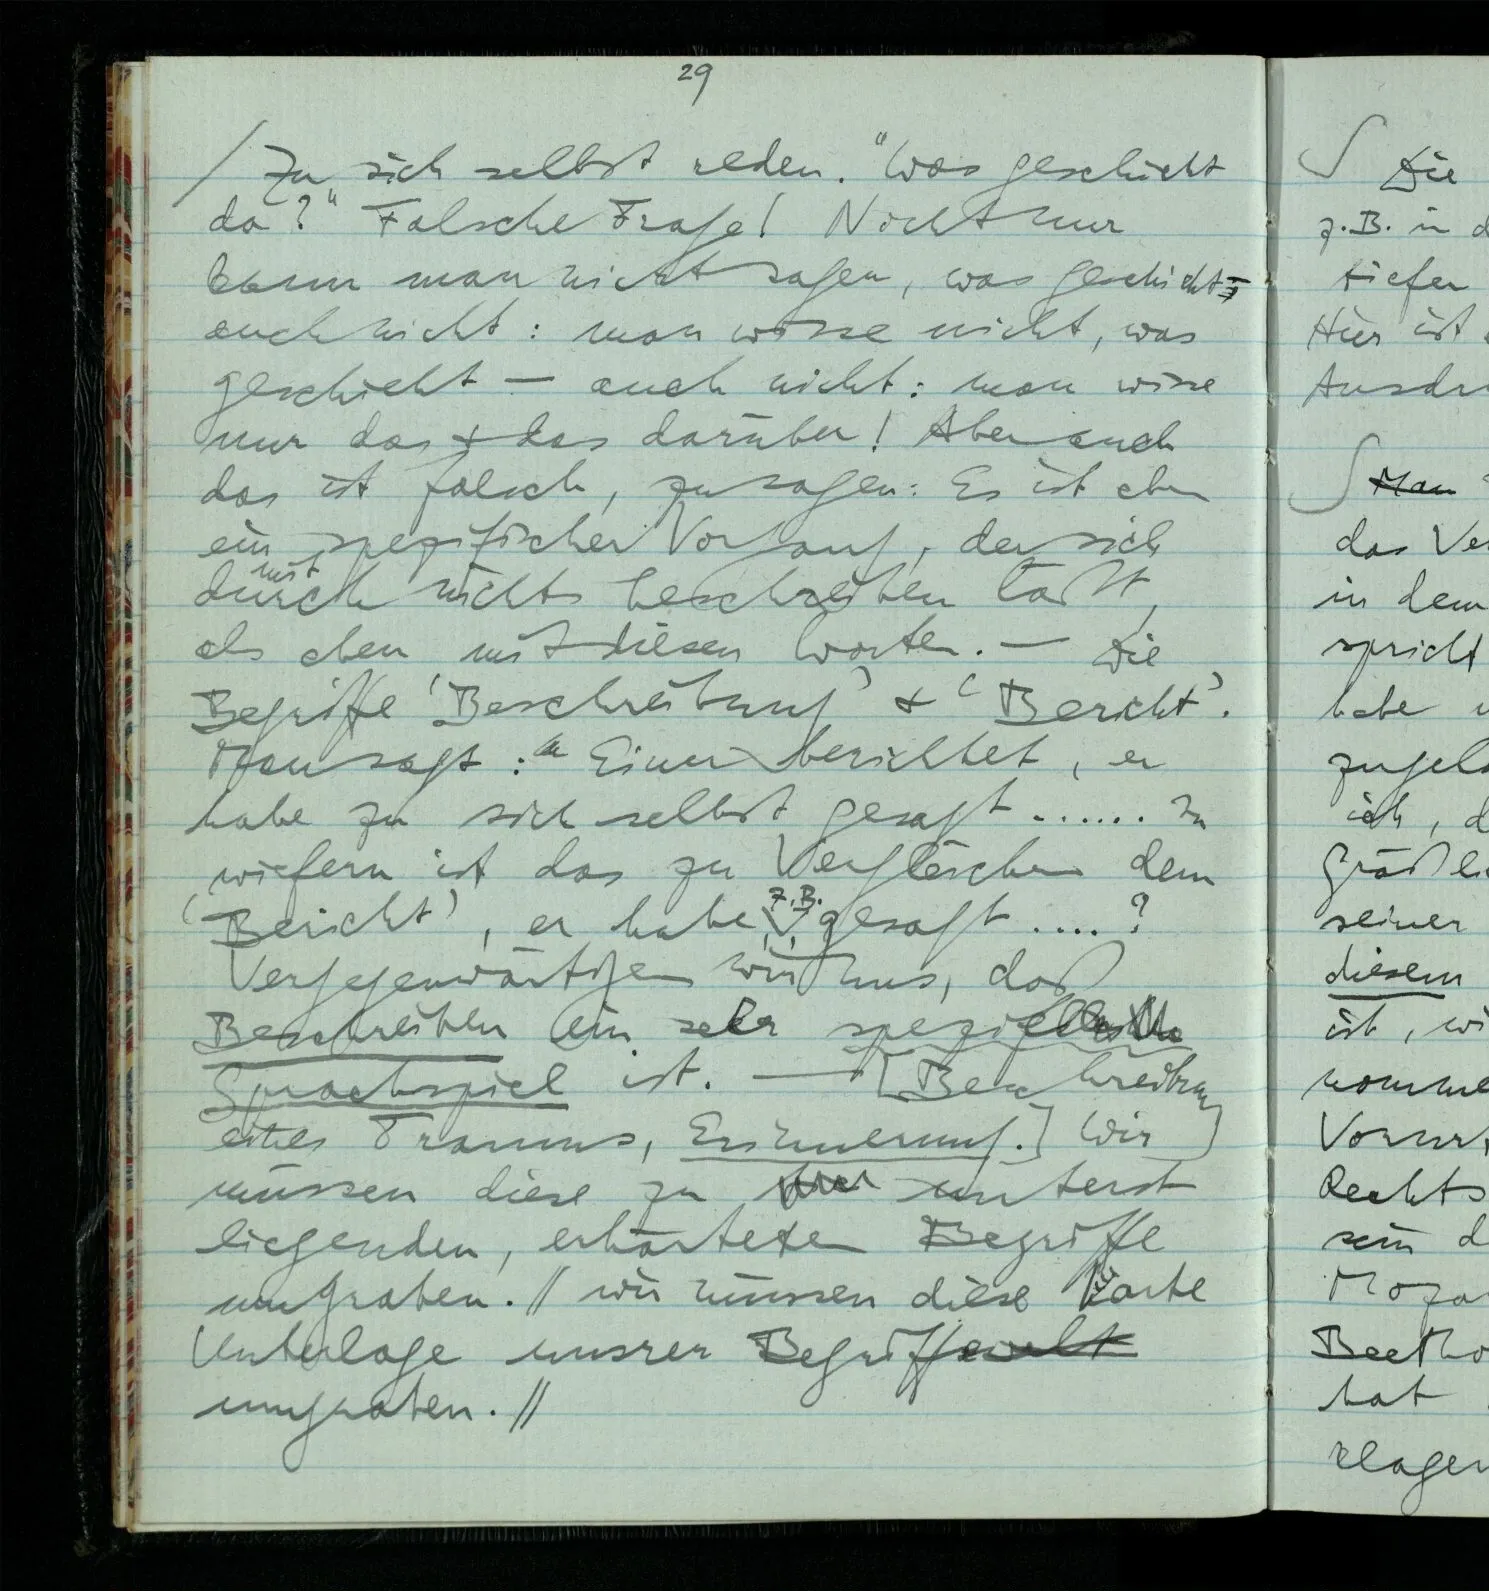 29
/ Zu sich selbst reden. "Was geschieht
da?" Falsche Frage! Nicht nur
kann man nicht sagen, was geschieht;
auch nicht: man wisse nicht, was
geschieht — auch nicht: man wisse
nur das + das darüber! Aber auch
das ist falsch, zu sagen: Es ist eben
ein spezifischer Vorgang, der sich
mit
durch nichts beschreiben läßt,
als eben mit diesen Worten. — Die
Begriffe 'Beschreibung' + 'Bericht'.
Man sagt: " Einer berichtet, er
habe zu sich selbst gesagt ...... In
wiefern ist das zu Vergleichen dem
'Bericht', er habe z.B. gesagt ....?
Vergegenwärtigen wir uns, daß
Beschreiben ein sehr spezielles
Sprachspiel ist. — [Beschreibung
eines Traums, Erinnerung.] Wir
müssen diese zu unterst
liegenden, erhärteten Begriffe
umgraben. // wir müssen diese harte
Unterlage unsrer Begriffswelt
umgraben. //
∫ Die
z.B. in d
tiefen
Hier ist
Ausdr
∫ Man
das Ve
in dem
spricht
habe
zugel
ich, d
Gräßli
seiner
diesem
ist, wi
komme
Vorurt
Rechts
sein d
Moza
Beetho
hat
klagen